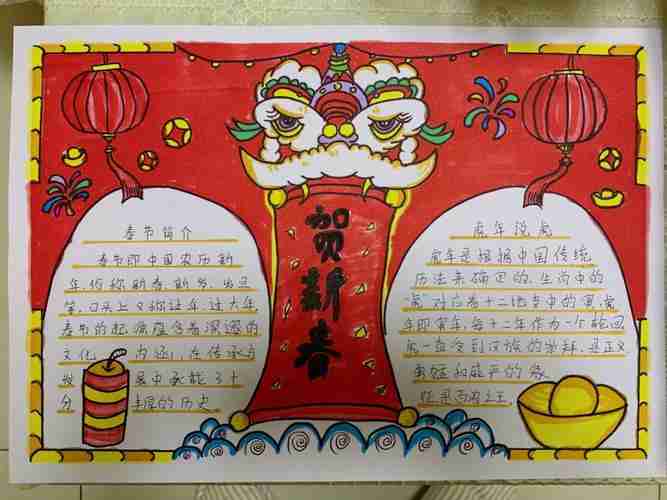 春节简介
春节即中国农历新
年,俗称新春,新岁,岁旦
等,口头上又称过年,过大年,
春节的起源蕴含着深邃的
文化内涵,在传承发
展中承载了丰
厚的历史
贺新春
虎年说虎
虎年是根据中国传统
历法来确定的,生肖中的
"虎"对应着十二地支中的寅,寅
年即虎年,每十二年作为一个轮回
虎一直受到汉族的崇拜,是正义
勇猛和威严的象